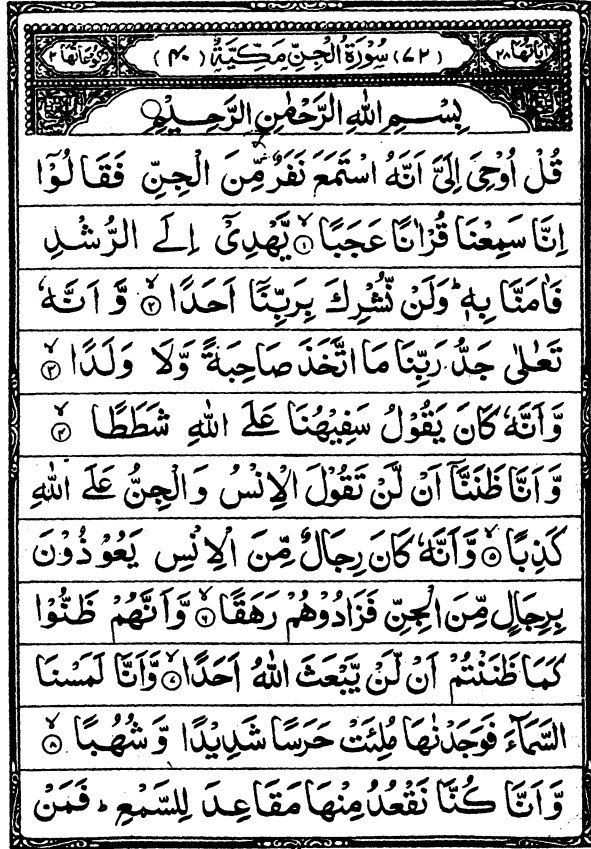 اٰيَاتُهَا ٢٨ (٧٢) سُوْرَةُ الْجِنِّ مَكِّيَّةٌ (٤٠) رُكُوْعَاتُهَا ٢
بِسْمِ اللهِ الرَّحْمٰنِ الرَّحِيْمِ
قُلْ اُوْحِيَ اِلَيَّ اَنَّهُ اسْتَمَعَ نَفَرٌ مِّنَ الْجِنِّ فَقَالُوْٓا
اِنَّا سَمِعْنَا قُرْاٰنًا عَجَبًا ۙ١ يَّهْدِيْٓ اِلَى الرُّشْدِ
فَاٰمَنَّا بِهٖ ؕ وَلَنْ نُّشْرِكَ بِرَبِّنَآ اَحَدًا ۙ٢ وَّ اَنَّهٗ
تَعٰلٰى جَدُّ رَبِّنَا مَا اتَّخَذَ صَاحِبَةً وَّلَا وَلَدًا ۙ٣
وَّ اَنَّهٗ كَانَ يَقُوْلُ سَفِيْهُنَا عَلَى اللهِ شَطَطًا ۙ٤
وَّ اَنَّا ظَنَنَّآ اَنْ لَّنْ تَقُوْلَ الْاِنْسُ وَالْجِنُّ عَلَى اللهِ
كَذِبًا ۙ٥ وَّ اَنَّهٗ كَانَ رِجَالٌ مِّنَ الْاِنْسِ يَعُوْذُوْنَ
بِرِجَالٍ مِّنَ الْجِنِّ فَزَادُوْهُمْ رَهَقًا ۙ٦ وَّ اَنَّهُمْ ظَنُّوْا
كَمَا ظَنَنْتُمْ اَنْ لَّنْ يَّبْعَثَ اللهُ اَحَدًا ۙ٧ وَّ اَنَّا لَمَسْنَا
السَّمَآءَ فَوَجَدْنٰهَا مُلِئَتْ حَرَسًا شَدِيْدًا وَّ شُهُبًا ۙ٨
وَّ اَنَّا كُنَّا نَقْعُدُ مِنْهَا مَقَاعِدَ لِلسَّمْعِ ؕ فَمَنْ